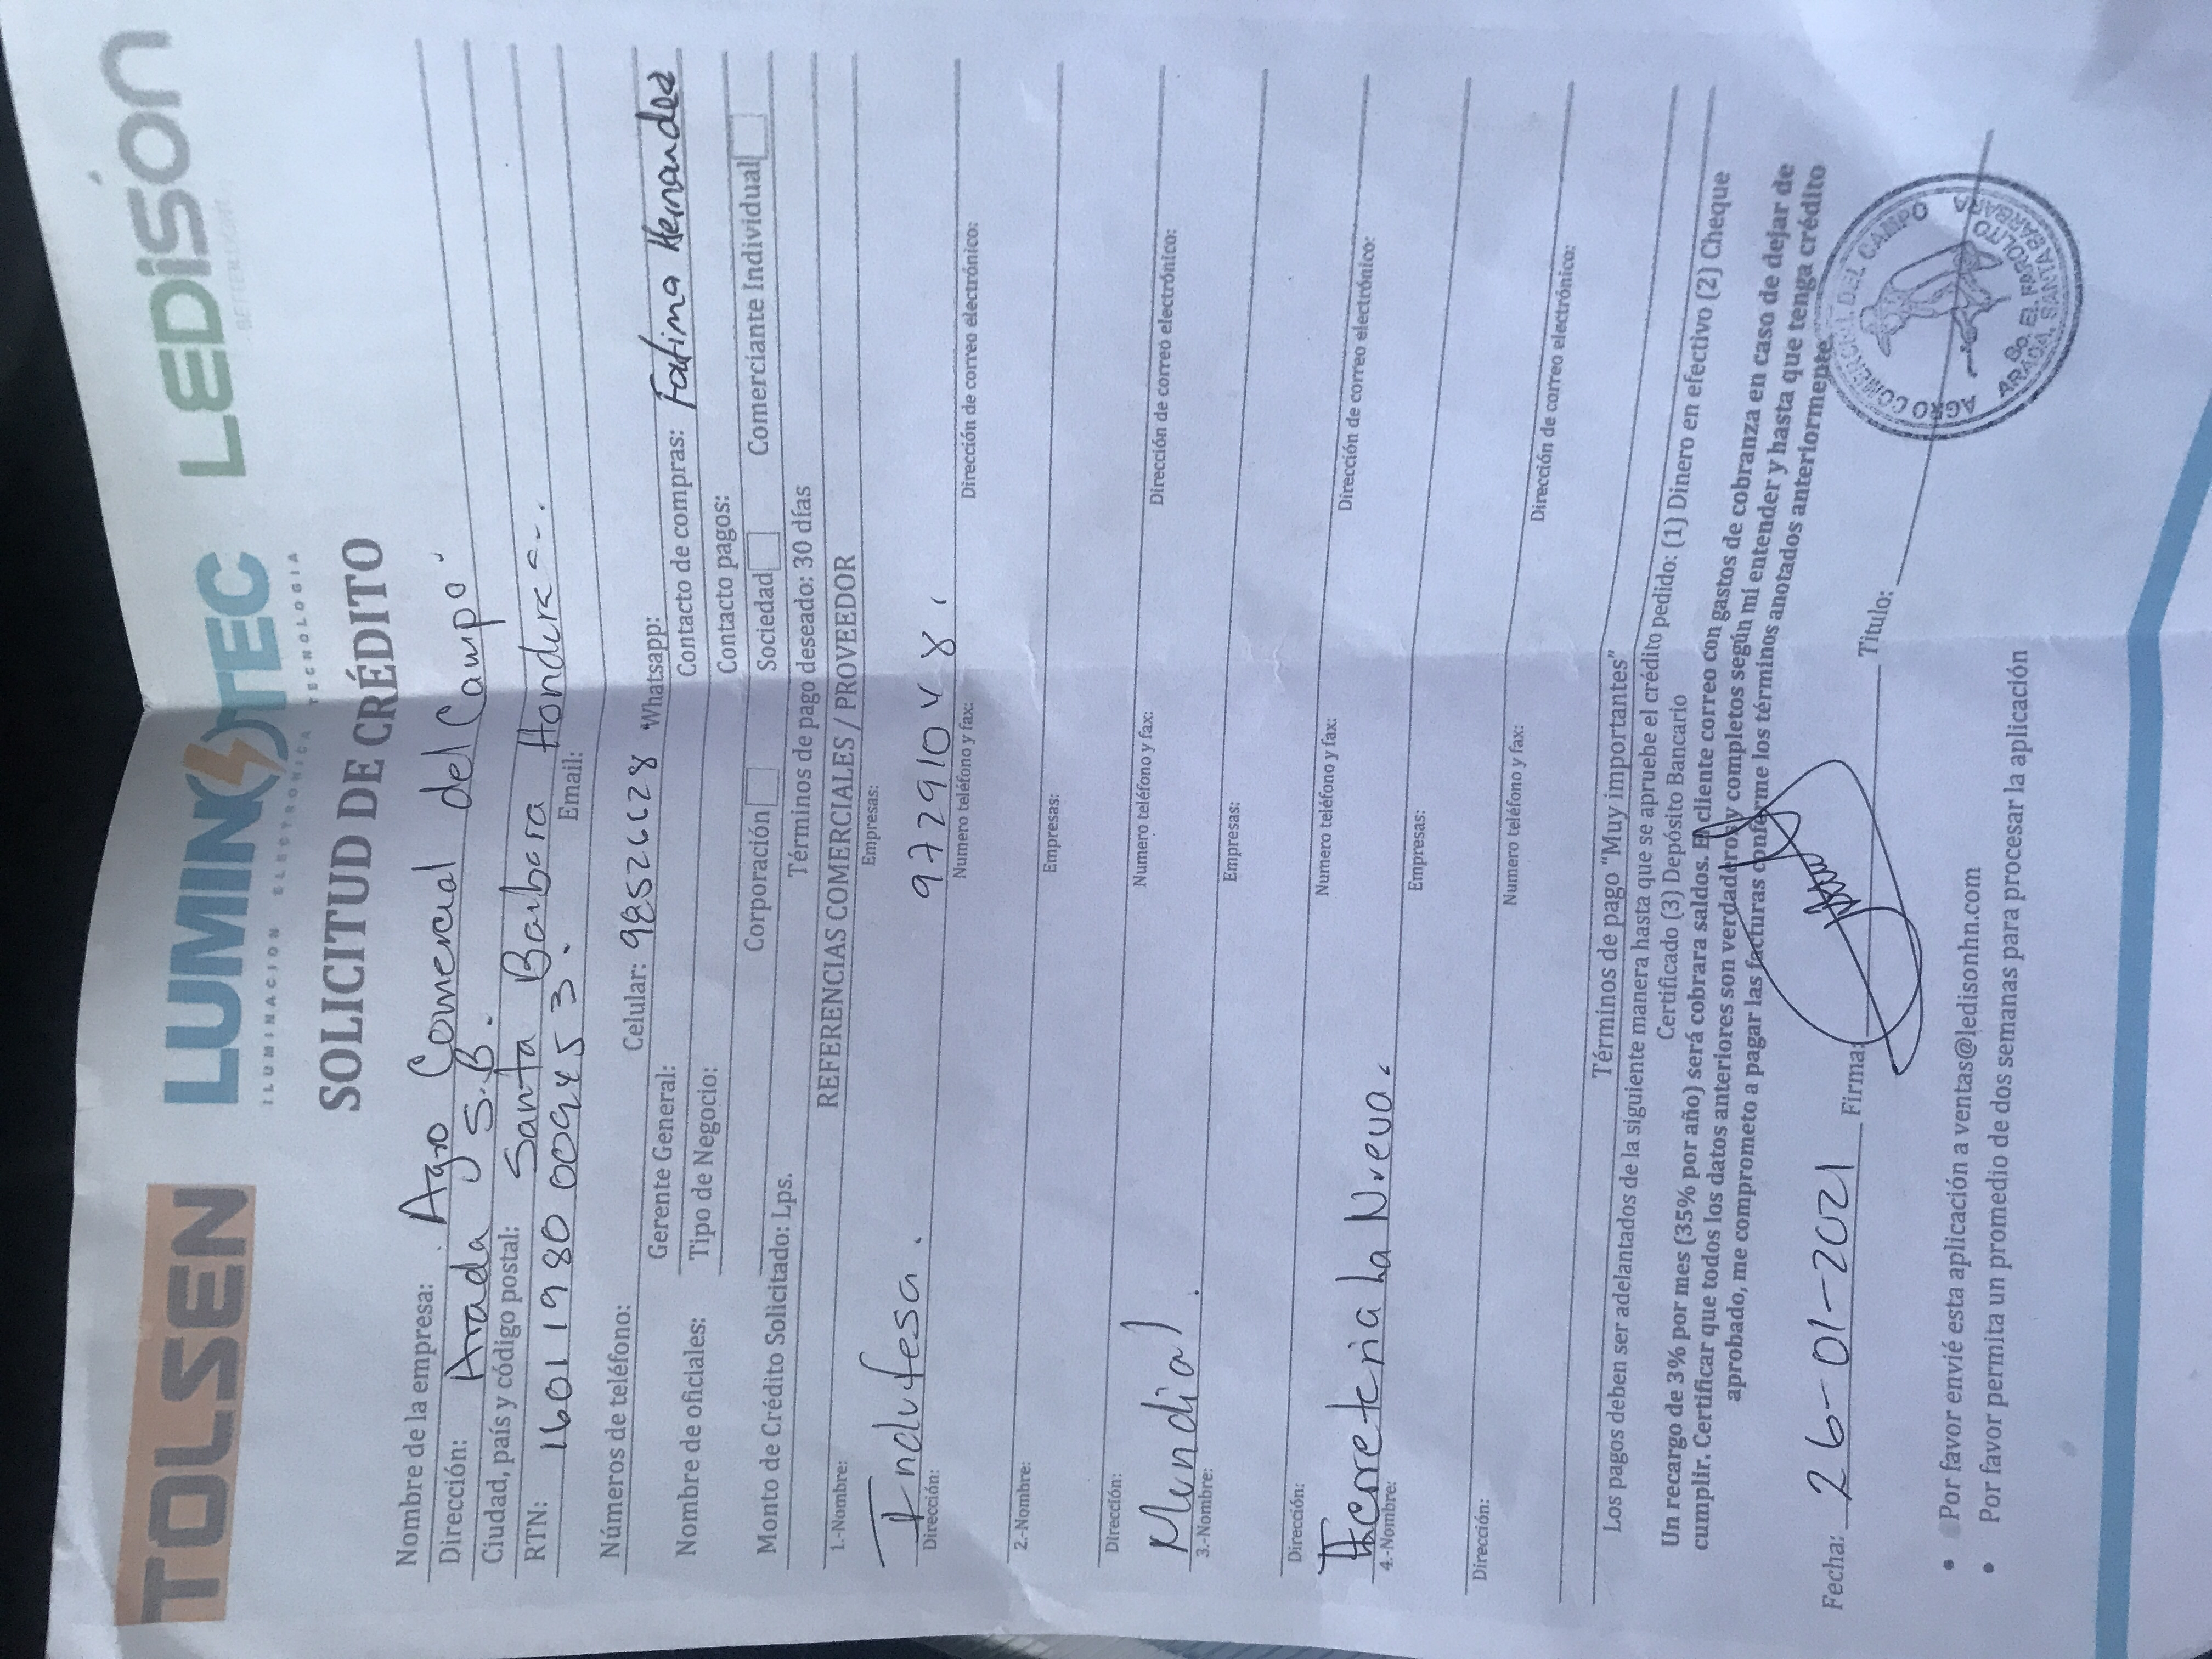 TOLSEN LUMINOTEC LEDISON
BETTER LIGHT
ILUMINACION ELECTRONICA TECNOLOGIA
SOLICITUD DE CRÉDITO
Nombre de la empresa: Agro Comercial del Campo
Dirección: Arada S.B.
Ciudad, país y código postal: Santa Barbara Honduras.
RTN: 16011980009453. Email:
Números de teléfono: Celular: 98526628 Whatsapp:
Nombre de oficiales: Gerente General: Contacto de compras: Fatima Hernandez
Tipo de Negocio: Contacto pagos:
Corporación Sociedad Comerciante Individual
Monto de Crédito Solicitado: Lps. Términos de pago deseado: 30 días
REFERENCIAS COMERCIALES / PROVEEDOR
1.-Nombre: Empresas:
Indufesa. 97291048.
Dirección: Numero teléfono y fax: Dirección de correo electrónico:
2.-Nombre: Empresas:
Dirección: Numero teléfono y fax: Dirección de correo electrónico:
Mundial.
3.-Nombre: Empresas:
Dirección: Numero teléfono y fax: Dirección de correo electrónico:
Ferreteria La Nueva.
4.-Nombre: Empresas:
Dirección: Numero teléfono y fax: Dirección de correo electrónico:
Términos de pago "Muy importantes"
Los pagos deben ser adelantados de la siguiente manera hasta que se apruebe el crédito pedido: (1) Dinero en efectivo (2) Cheque
Certificado (3) Depósito Bancario
Un recargo de 3% por mes (35% por año) será cobrara saldos. El cliente correo con gastos de cobranza en caso de dejar de
cumplir. Certificar que todos los datos anteriores son verdaderos y completos según mi entender y hasta que tenga crédito
aprobado, me comprometo a pagar las facturas conforme los términos anotados anteriormente.
Fecha: 26-01-2021 Firma: Titulo:
AGRO COMERCIAL DEL CAMPO
Bo. EL FAROLITO
ARADA, SANTA BARBARA
• Por favor envié esta aplicación a ventas@ledisonhn.com
• Por favor permita un promedio de dos semanas para procesar la aplicación